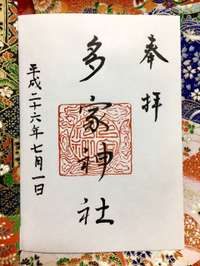 奉拝
多家神社
平成二十六年七月一日